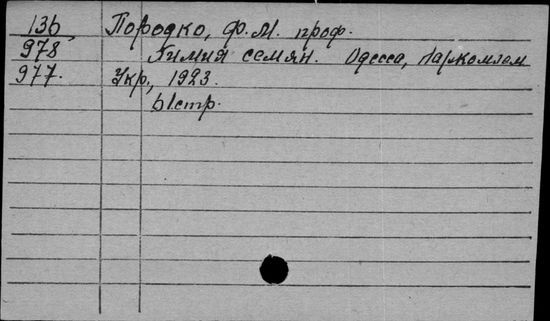 136 Породко, Ф.М. проф.
978 Химия семян. Одесса, Наркомзем
977. Укр., 1923.
61стр.